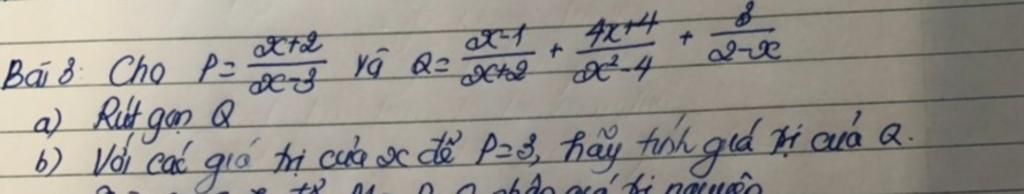 Bài 8: Cho P = (x+2)/(x-3) và Q = (x-1)/(x+2) + (4x+4)/(x²-4) + 8/(2-x)
a) Rút gọn Q
b) Với các giá trị của x để P=3, hãy tính giá trị của Q.